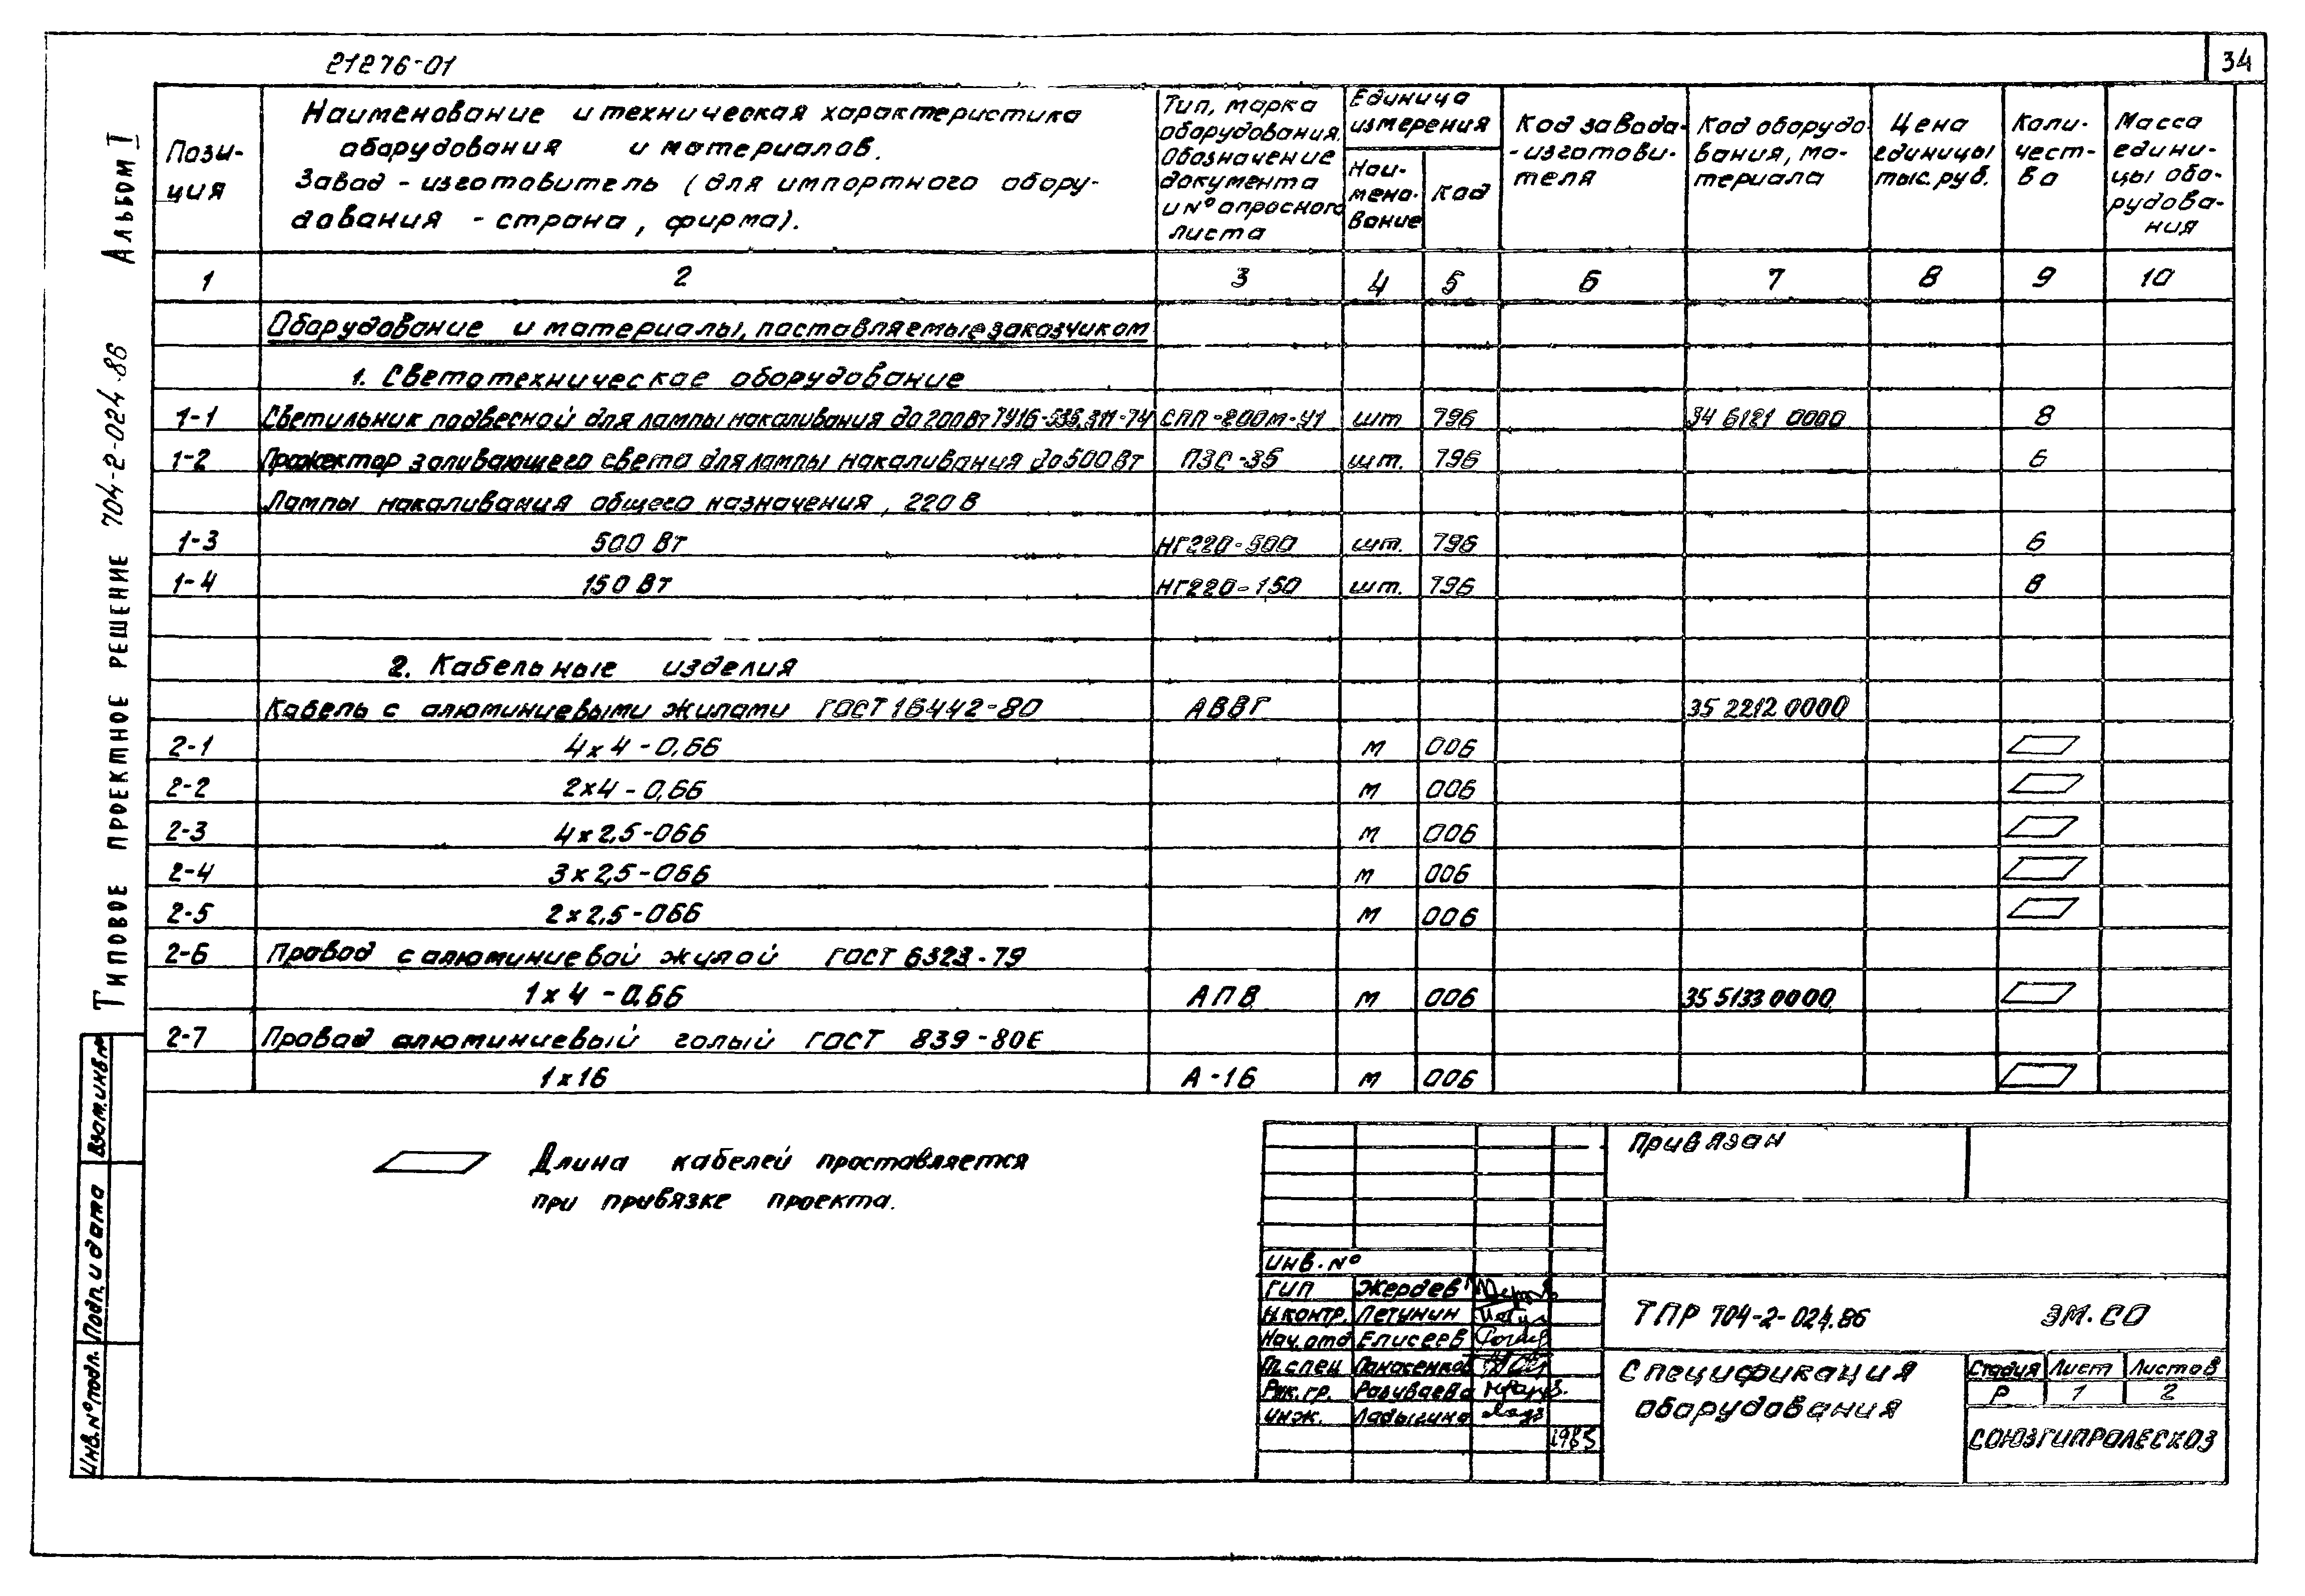 21276-01
34
Альбом I
Типовое проектное решение 704-2-024.86
Взам.инв.№
Подп. и дата
Инв.№ подл.
Позиция
Наименование и техническая характеристика
оборудования и материалов.
Завод-изготовитель (для импортного обору-
дования - страна, фирма).
Тип, марка
оборудования.
Обозначение
документа
и № опросного
листа
Единица
измерения
Наи-
мено-
вание
Код
Код завода-
-изготови-
теля
Код оборудо
вания, ма-
териала
Цена
единицы
тыс.руб.
Коли-
чест-
во
Масса
едини-
цы обо-
рудова-
ния
1 2 3 4 5 6 7 8 9 10
Оборудование и материалы, поставляемые заказчиком
1. Светотехническое оборудование
1-1 Светильник подвесной для лампы накаливания до 200Вт ТУ16-535.311-74 СПП-200М-У1 шт 796 34 6121 0000 8
1-2 Прожектор заливающего света для лампы накаливания до 500Вт ПЗС-35 шт. 796 6
Лампы накаливания общего назначения, 220 В
1-3 500 Вт НГ220-500 шт. 796 6
1-4 150 Вт НГ220-150 шт. 796 8
2. Кабельные изделия
Кабель с алюминиевыми жилами ГОСТ 16442-80 АВВГ 35 2212 0000
2-1 4х4-0,66 м 006
2-2 2х4-0,66 м 006
2-3 4х2,5-066 м 006
2-4 3х2,5-066 м 006
2-5 2х2,5-066 м 006
2-6 Провод с алюминиевой жилой ГОСТ 6323-79
1х4-0,66 АПВ м 006 35 5133 0000
2-7 Провод алюминиевый голый ГОСТ 839-80Е
1х16 А-16 м 006
Длина кабелей проставляется
при привязке проекта.
Привязан
Инв.№
ГИП Жердев
Н.контр. Петунин
Нач.отд Елисеев
Гл.спец Панасенков
Рук.гр. Разуваева
Инж. Ладыгина
1985
ТПР 704-2-024.86 ЭМ.СО
Спецификация
оборудования
Стадия Лист Листов
Р 1 2
СОЮЗГИПРОЛЕСХОЗ